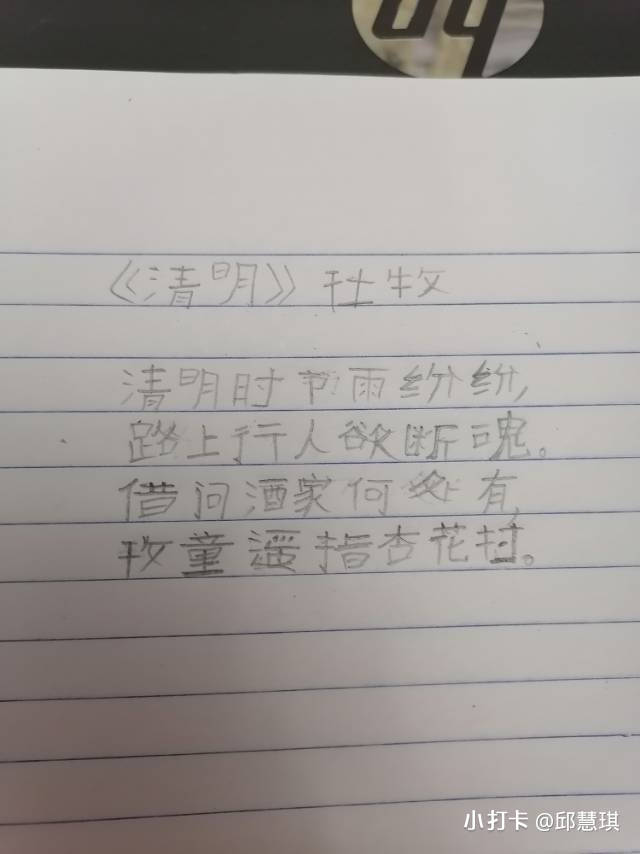 hp
《清明》杜牧
清明时节雨纷纷,
路上行人欲断魂。
借问酒家何处有,
牧童遥指杏花村。
小打卡 @邱慧琪